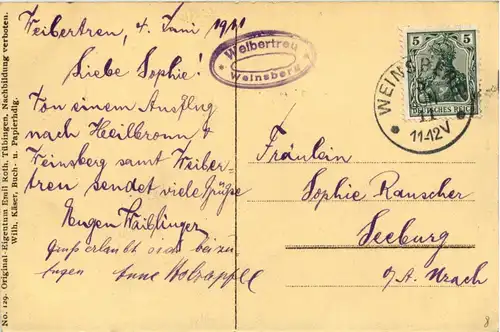 Weibertreu, 4. Juni 1911
Liebe Sophie!
Von einem Ausflug
nach Heilbronn &
Weinsberg samt Weiber-
treu sendet viele Grüße
Eugen Waiblinger
Gruß erlaubt sich beizu
fügen Anne Holzapfel
Weibertreu
* Weinsberg *
5 5
DEUTSCHES REICH
WEINSBERG
11
11-12V
Fräulein
Sophie Rauscher
Seeburg
O/A. Urach
No. 129. Original-Eigentum Emil Roth, Tübingen, Nachbildung verboten.
Wilh. Käser, Buch- u. Papierhdlg.